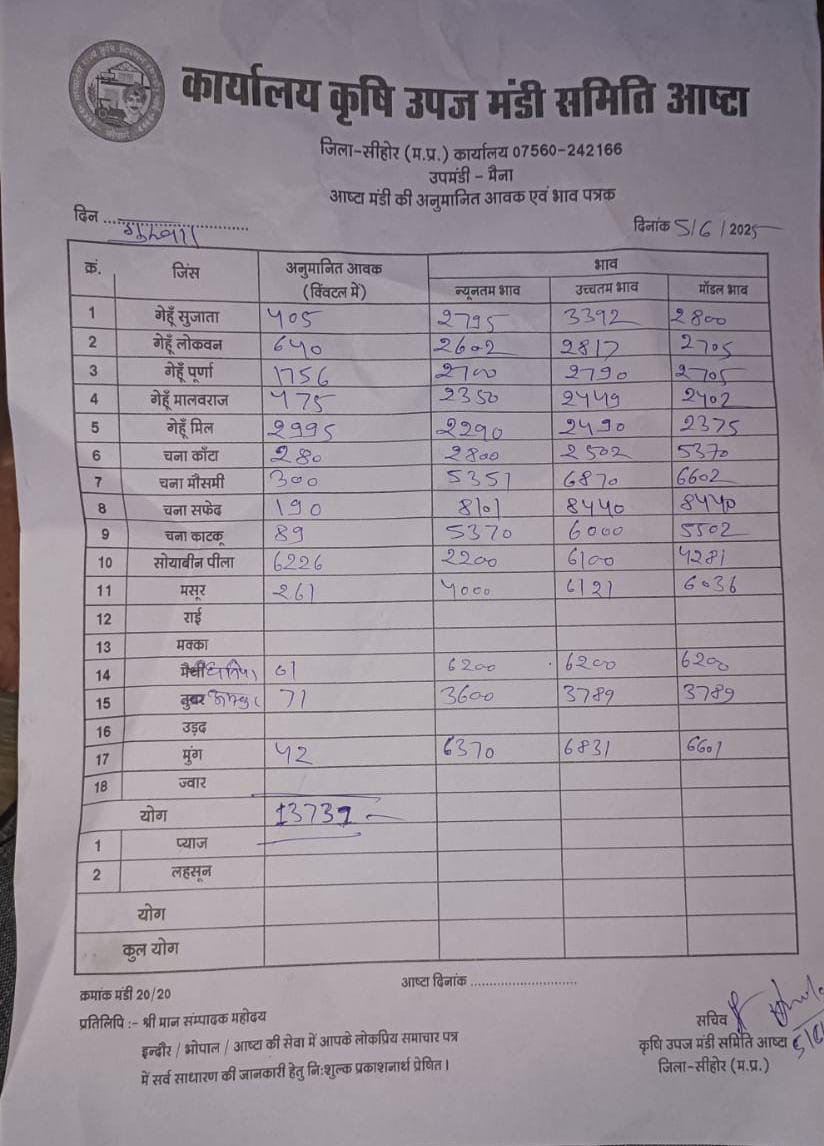 कार्यालय कृषि उपज मंडी समिति आष्टा
जिला-सीहोर (म.प्र.) कार्यालय 07560-242166
उपमंडी - मैना
आष्टा मंडी की अनुमानित आवक एवं भाव पत्रक
दिन .................. दिनांक 5/6/2025
क्रं. जिंस अनुमानित आवक (क्विंटल में) भाव
न्यूनतम भाव उच्चतम भाव मॉडल भाव
1 गेहूँ सुजाता 405 2795 3392 2800
2 गेहूँ लोकवन 640 2602 2817 2705
3 गेहूँ पूर्णा 1756 2700 2790 2705
4 गेहूँ मालवराज 475 2350 2449 2402
5 गेहूँ मिल 2995 2290 2490 2375
6 चना काँटा 280 2800 2502 5370
7 चना मौसमी 300 5351 6870 6602
8 चना सफेद 190 8101 8440 8440
9 चना काटकू 89 5370 6000 5502
10 सोयाबीन पीला 6226 2200 6100 4281
11 मसूर 261 4000 6121 6036
12 राई
13 मक्का
14 मैथी 01 6200 6200 6200
15 तुवर 71 3600 3789 3789
16 उड़द
17 मुंग 42 6370 6831 6601
18 ज्वार
योग 13731
1 प्याज
2 लहसून
योग
कुल योग
आष्टा दिनांक ............................
क्रमांक मंडी 20/20
प्रतिलिपि :- श्री मान सम्पादक महोदय
इन्दौर / भोपाल / आष्टा की सेवा में आपके लोकप्रिय समाचार पत्र
में सर्व साधारण की जानकारी हेतु निःशुल्क प्रकाशनार्थ प्रेषित।
सचिव
कृषि उपज मंडी समिति आष्टा
जिला-सीहोर (म.प्र.)